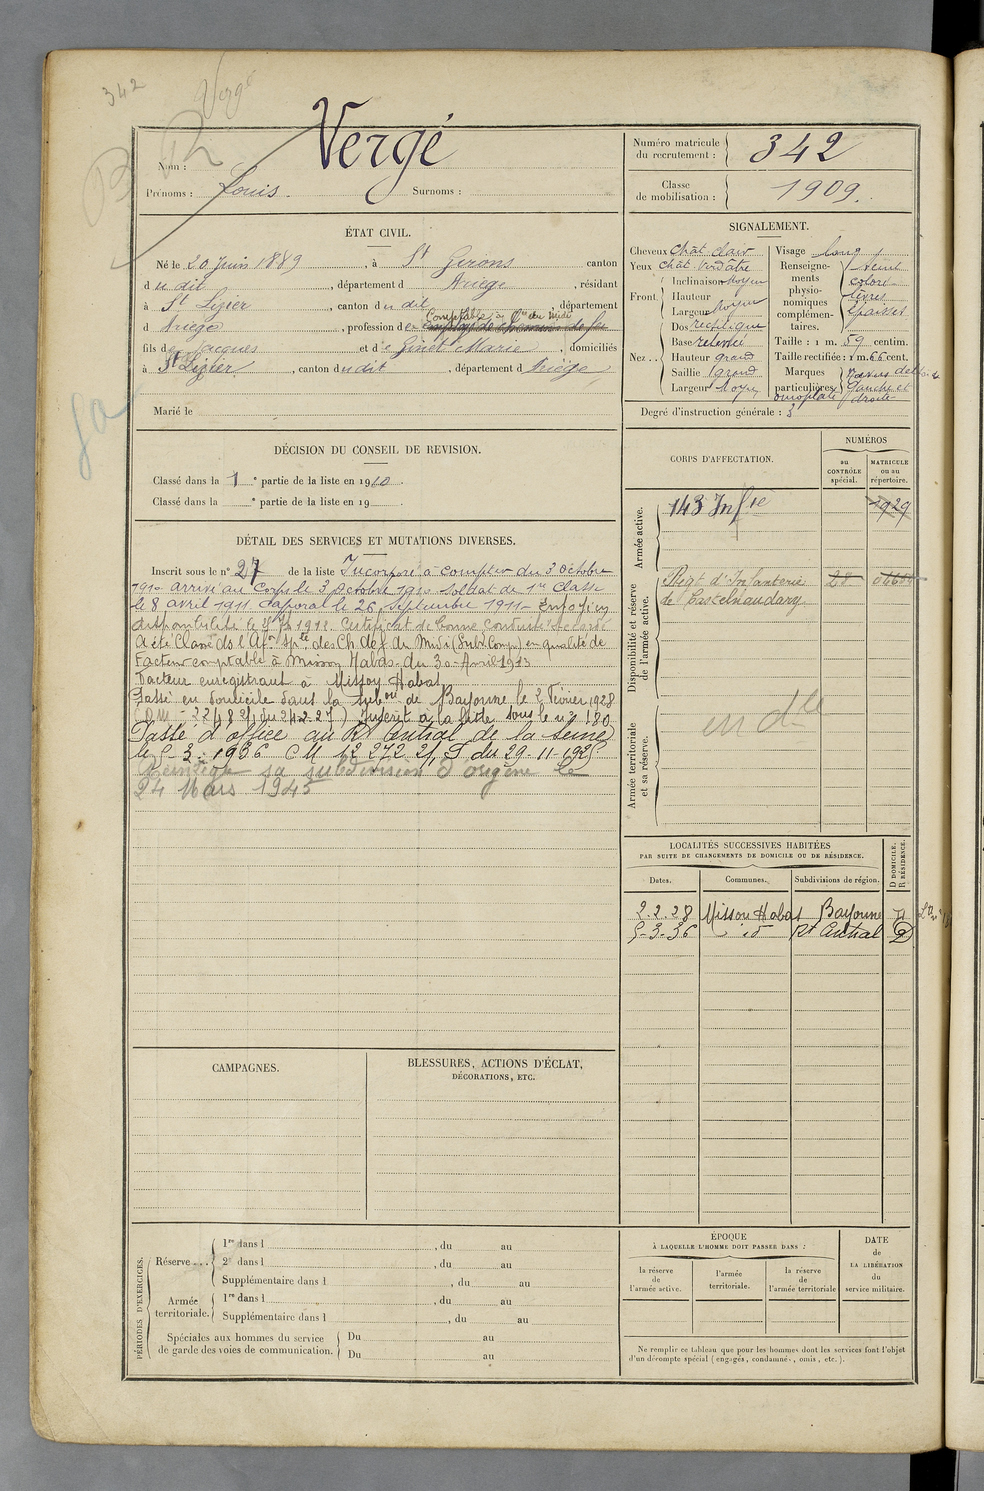 342
Vergé
Nom : Vergé
Prénoms : Louis. Surnoms :
Numéro matricule du recrutement : 342
Classe de mobilisation : 1909.
ÉTAT CIVIL.
Né le 20 Juin 1889, à St Girons canton
du dit, département d Ariège, résidant
à St Lizier, canton du dit, département
d Ariège, profession de employé de chemin de fer
Comptable à Cie du midi
fils de Jacques et de Ginet Marie, domiciliés
à St Lizier, canton du dit, département d Ariège
Marié le
DÉCISION DU CONSEIL DE REVISION.
Classé dans la 1e partie de la liste en 1910.
Classé dans la e partie de la liste en 19 .
DÉTAIL DES SERVICES ET MUTATIONS DIVERSES.
Inscrit sous le n° 27 de la liste Incorporé à compter du 3 octobre
1910 arrivé au Corps le 3 octobre 1910 soldat de 1re classe
le 8 avril 1911 Caporal le 26 septembre 1911 Envoyé en
disponibilité le 1912. Certificat de bonne conduite accordé
A été Classé ds l'Afon spte des Ch de f du Midi (Subd Comp) en qualité de
Facteur comptable à Misson Habas du 30 Avril 1913
Facteur enregistrant à Misson Habas
Passé en domicile dans la subon de Bayonne le 2 Février 1928
Inscrit à la liste sous le n° 180
Passé d'office au Rt Central de la Seine
le 5-3-1936 CM 12 272 2/1 S du 29-11-1925
sa subdivision d'origine le
24 Mars 1945
SIGNALEMENT.
Cheveux Chât clair
Yeux chât verdâtre
Front. Inclinaison Moyen
Hauteur
Largeur Moyen
Nez Dos rectiligne
Base relevée
Hauteur grand
Saillie grand
Largeur Moyen
Visage long
Renseignements physionomiques complémentaires. teint coloré lèvres épaisses
Taille : 1 m. 59 centim.
Taille rectifiée : 1 m. 66 cent.
Marques particulières gauche et droite omoplate
Degré d'instruction générale : 3
CORPS D'AFFECTATION.
NUMÉROS
au CONTRÔLE spécial.
MATRICULE ou au répertoire.
Armée active.
143 Infie 1929
Disponibilité et réserve de l'armée active.
Régt d'Infanterie 28
de Castelnaudary
Armée territoriale et sa réserve.
en dle
LOCALITÉS SUCCESSIVES HABITÉES
PAR SUITE DE CHANGEMENTS DE DOMICILE OU DE RÉSIDENCE.
Dates. Communes. Subdivisions de région. D DOMICILE. R RÉSIDENCE.
2.2.28 Misson Habas Bayonne D
5-3-36 id Rt Central D
CAMPAGNES.
BLESSURES, ACTIONS D'ÉCLAT,
DÉCORATIONS, ETC.
PÉRIODES D'EXERCICES.
Réserve.... 1re dans l , du au
2e dans l , du au
Supplémentaire dans l , du au
Armée territoriale. 1re dans l , du au
Supplémentaire dans l , du au
Spéciales aux hommes du service de garde des voies de communication. Du au
Du au
ÉPOQUE
À LAQUELLE L'HOMME DOIT PASSER DANS :
la réserve de l'armée active.
l'armée territoriale.
la réserve de l'armée territoriale
DATE de LA LIBÉRATION du service militaire.
Ne remplir ce tableau que pour les hommes dont les services font l'objet
d'un décompte spécial (engagés, condamnés, omis, etc.).